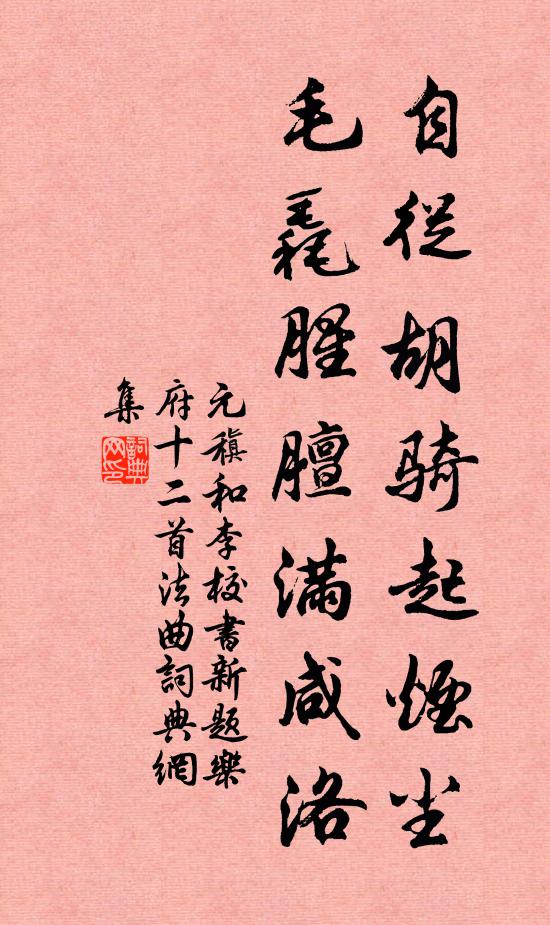 自從胡騎起煙尘
毛毳腥膻滿咸洛
元稹和李校書新題樂
府十二首法曲詞典網
集
詞典網印